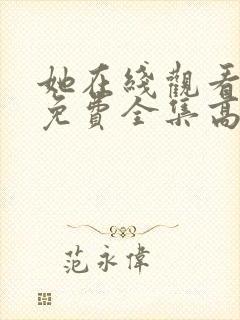 她在綫觀看
免費全集高
范永偉